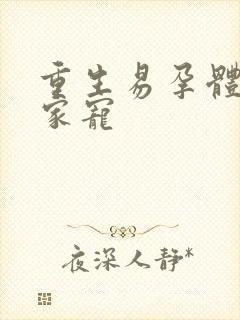 重生易孕體
家寵
夜深人靜*